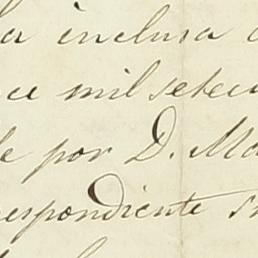 la inclusa
ce mil setec
le por D. Ma
respondiente